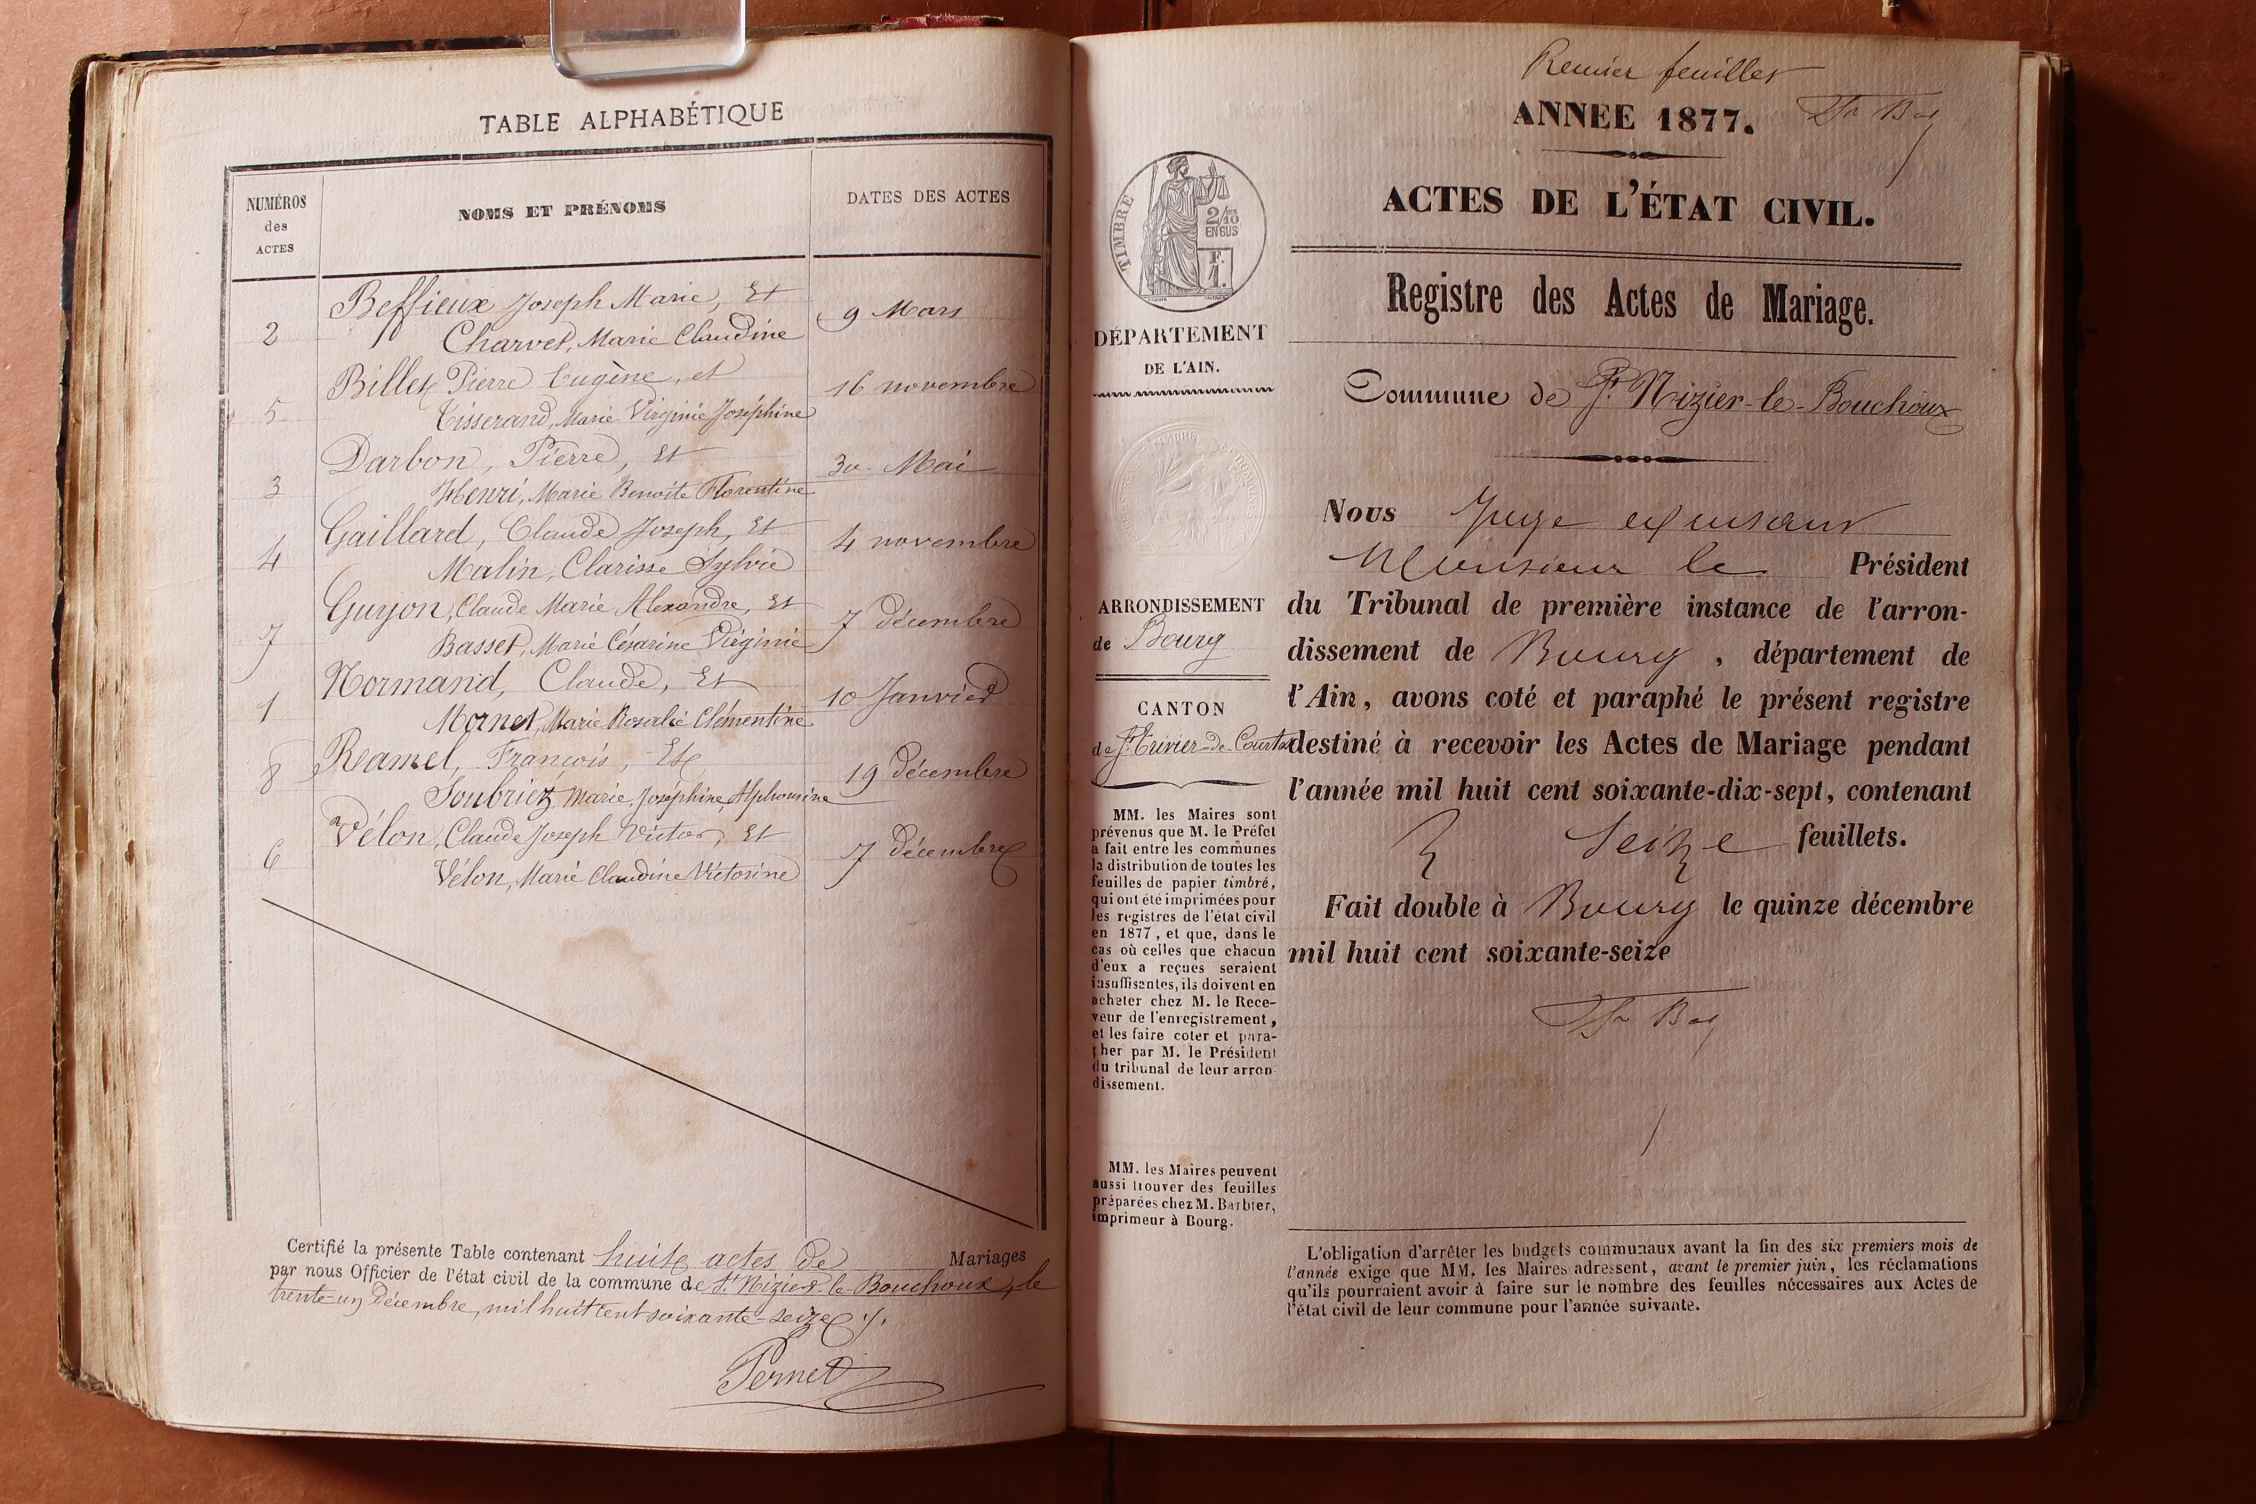 TABLE ALPHABÉTIQUE
NUMÉROS
des
ACTES
NOMS ET PRÉNOMS
DATES DES ACTES
Beffieux Joseph Marie, Et
2 Charvet, Marie Claudine 9 Mars
Billet Pierre Eugène, et
5 Tisserand, Marie Virginie Joséphine 16 novembre
Darbon, Pierre, Et
3 Henri, Marie Benoite Florentine 30 Mai
Gaillard, Claude Joseph, Et
4 Malin, Clarisse Sylvie 4 novembre
Guyon, Claude Marie Alexandre, Et
7 Basset, Marie Césarine Virginie 7 décembre
Normand, Claude, Et
1 Mornet, Marie Rosalie Clémentine 10 Janvier
Ramel, François, Et
8 Soubriez, Marie Joséphine Alphonsine 19 décembre
Vélon, Claude Joseph Victor, Et
6 Vélon, Marie Claudine Victorine 7 décembre
Certifié la présente Table contenant huit actes de Mariages
par nous Officier de l'état civil de la commune de St Nizier-le-Bouchoux, le
trente-un Décembre, mil huit cent soixante-seize ./.
Pernet
Premier feuillet
ANNEE 1877.
ACTES DE L'ÉTAT CIVIL.
Registre des Actes de Mariage.
Commune de St Nizier-le-Bouchoux
TIMBRE
2/10
EN SUS
F.
1.
DÉPARTEMENT
DE L'AIN.
ARRONDISSEMENT
de Bourg
CANTON
de St Trivier-de-Courtes
MM. les Maires sont
prévenus que M. le Préfet
a fait entre les communes
la distribution de toutes les
feuilles de papier timbré,
qui ont été imprimées pour
les registres de l'état civil
en 1877, et que, dans le
cas où celles que chacun
d'eux a reçues seraient
insuffisantes, ils doivent en
acheter chez M. le Rece-
veur de l'enregistrement,
et les faire coter et para-
pher par M. le Président
du tribunal de leur arron-
dissement.
MM. les Maires peuvent
aussi trouver des feuilles
préparées chez M. Barbier,
imprimeur à Bourg.
Nous Juge
Monsieur le Président
du Tribunal de première instance de l'arron-
dissement de Bourg, département de
l'Ain, avons coté et paraphé le présent registre
destiné à recevoir les Actes de Mariage pendant
l'année mil huit cent soixante-dix-sept, contenant
Seize feuillets.
Fait double à Bourg le quinze décembre
mil huit cent soixante-seize
L'obligation d'arrêter les budgets communaux avant la fin des six premiers mois de
l'année exige que MM. les Maires adressent, avant le premier juin, les réclamations
qu'ils pourraient avoir à faire sur le nombre des feuilles nécessaires aux Actes de
l'état civil de leur commune pour l'année suivante.